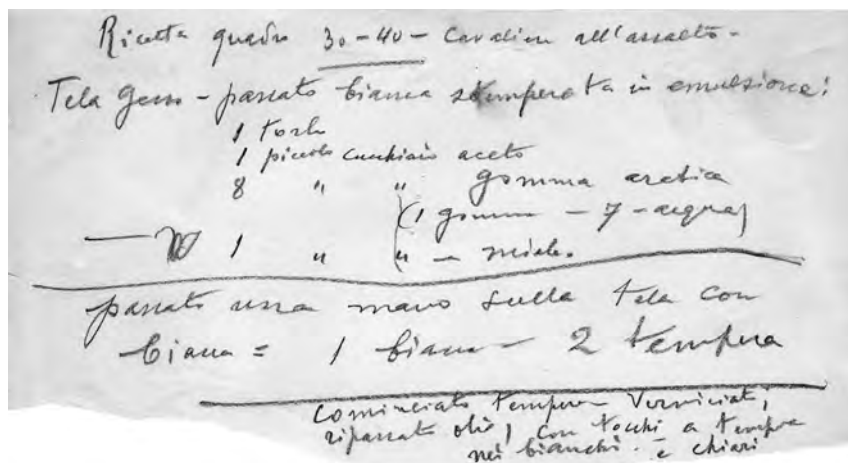 Ricetta quadro 30-40- Cavalieri all'assalto-
Tela gesso - passato biacca stemperata in emulsione:
1 torlo
1 piccolo cucchiaio aceto
8 " " gomma arabica
(1 gomma - 7 - acqua)
1 " " - miele.
passato una mano sulla tela con
biacca = 1 biacca - 2 tempera
Cominciato tempera - Verniciato,
ripassato olio, con tocchi a tempera
nei bianchi - e chiari